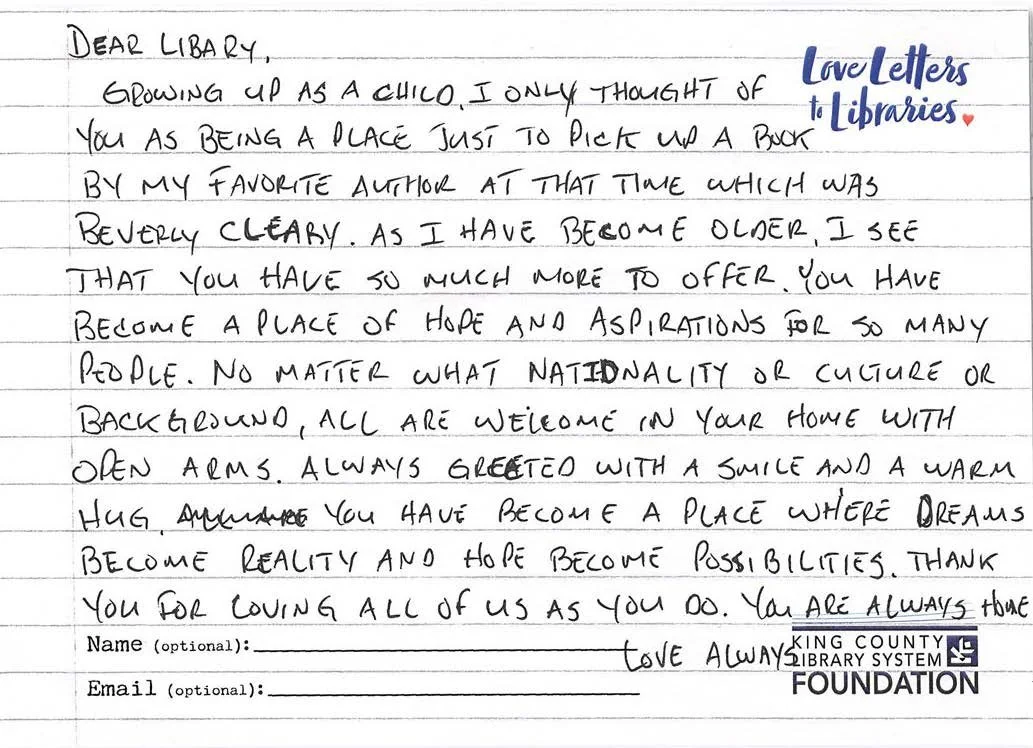 DEAR LIBARY,
Love Letters
to Libraries.
GROWING UP AS A CHILD, I ONLY THOUGHT OF
YOU AS BEING A PLACE JUST TO PICK UP A BOOK
BY MY FAVORITE AUTHOR AT THAT TIME WHICH WAS
BEVERLY CLEARY. AS I HAVE BECOME OLDER, I SEE
THAT YOU HAVE SO MUCH MORE TO OFFER. YOU HAVE
BECOME A PLACE OF HOPE AND ASPIRATIONS FOR SO MANY
PEOPLE. NO MATTER WHAT NATIONALITY OR CULTURE OR
BACKGROUND, ALL ARE WELCOME IN YOUR HOME WITH
OPEN ARMS. ALWAYS GREETED WITH A SMILE AND A WARM
HUG. YOU HAVE BECOME A PLACE WHERE DREAMS
BECOME REALITY AND HOPE BECOME POSSIBILITIES. THANK
YOU FOR LOVING ALL OF US AS YOU DO. YOU ARE ALWAYS HOME
Name (optional):
LOVE ALWAYS
KING COUNTY
LIBRARY SYSTEM
FOUNDATION
Email (optional):